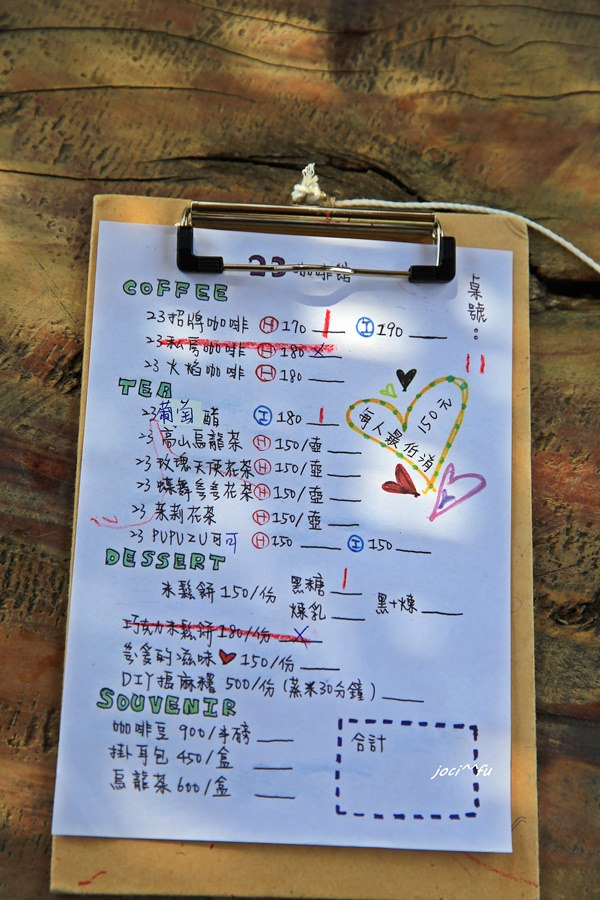 23 咖啡館
COFFEE
桌號: 11
23招牌咖啡 H 170 1 I 190
23私房咖啡 H 180 X
23火焰咖啡 H 180
TEA
23葡萄醋 I 180 1
每人最低消 150元
23高山烏龍茶 H 150/壺
23玫瑰天使花茶 H 150/壺
23蝶舞爹爹花茶 H 150/壺
23茉莉花茶 H 150/壺
23 PUPUZU可可 H 150 I 150
DESSERT
米鬆餅 150/份 黑糖 1
煉乳 黑+煉
巧克力米鬆餅 180/份 X
爹爹的滋味 ♥ 150/份
DIY搗麻糬 500/份 (蒸米30分鐘)
SOUVENIR
咖啡豆 900/半磅
掛耳包 450/盒
烏龍茶 600/盒
合計
joci^^fu